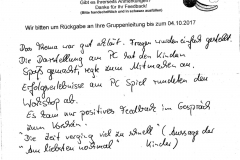 Gibt es Ihrerseits Anmerkungen?
Danke für Ihr Feedback!
Wir bitten um Rückgabe an Ihre Gruppenleitung bis zum 04.10.2017
Das Thema war gut erklärt. Fragen wurden einfach gestellt.
Die Darstellung am PC hat den Kindern
Spaß gemacht, regte zum Mitmachen an.
Erfolgserlebnisse am PC Spiel rundeten den
Workshop ab.
Es kam nur positives Feedback im Gespräch
zum Vorschein.
"Die Zeit verging viel zu schnell" (Aussage der
"Am liebsten nochmal" Kinder)